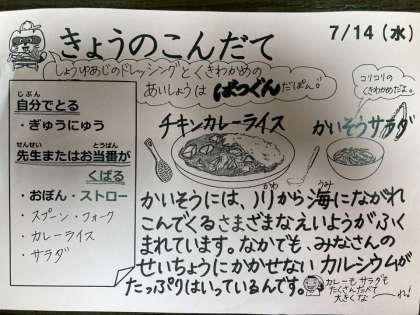 きょうのこんだて
7/14(水)
しょうゆあじのドレッシングとくきわかめの
あいしょうは ばつぐんだぽん。
コリコリの
くきわかめだよ。
じぶん
自分でとる
・ぎゅうにゅう
せんせい とうばん
先生またはお当番が
くばる
・おぼん・ストロー
・スプーン・フォーク
・カレーライス
・サラダ
チキンカレーライス
かいそうサラダ
かわ うみ
かいそうには、川から海にながれ
こんでくるさまざまなえいようがふく
まれています。なかでも、みなさんの
せいちょうにかかせない カルシウムが
たっぷりはいっているんです。
カレーも サラダも
たくさん食べて
大きくな
れ!